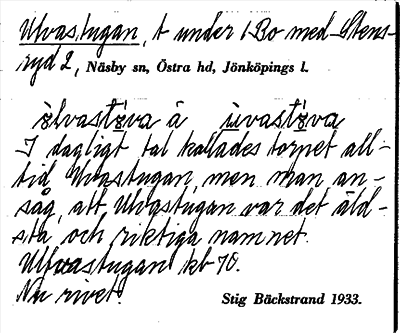 Ulvastugan, t under 1 Bo med Stens-
ryd 2, Näsby sn, Östra hd, Jönköpings l.
ølvastøva å uvastøva
I dagligt tal kallades torpet all-
tid Uvastugan, men man an-
såg, att Ulvastugan var det äld-
sta och riktiga namnet.
Ulfvastugan kb 70.
Nu rivet.
Stig Bäckstrand 1933.